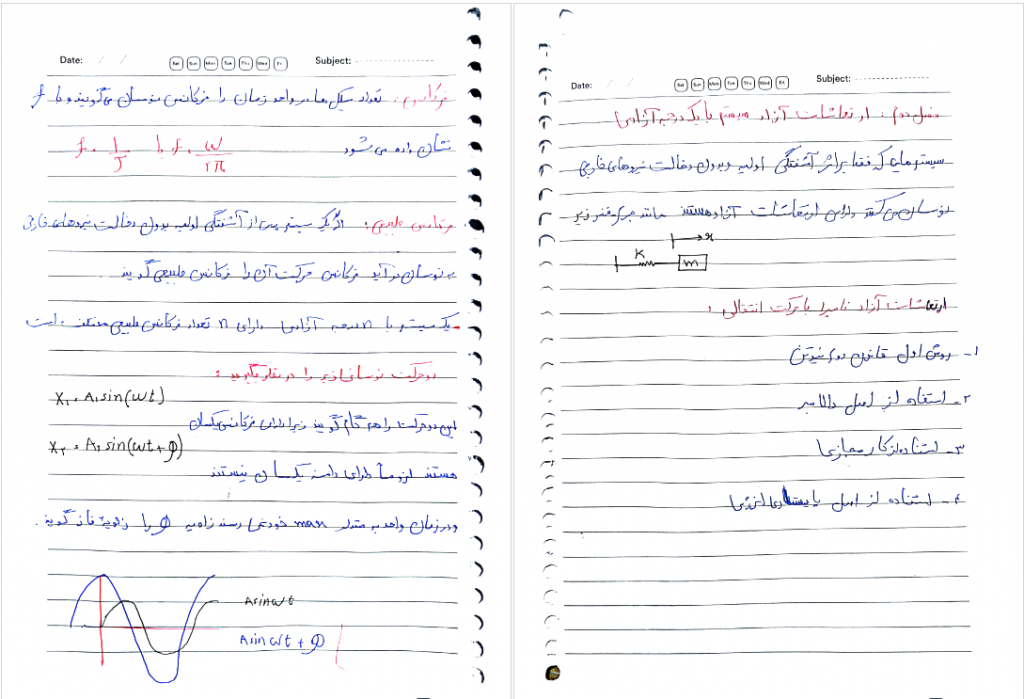 Date: / / Sat Sun Mon Tue Thu Wed Fri Subject:
فرکانس: تعداد سیکل ها در واحد زمان را فرکانس نوسان می گویند و با f
نشان داده می شود f = 1/T یا f = ω/2π
فرکانس طبیعی: اگر یک سیستم پس از آشفتگی اولیه بدون دخالت نیروهای خارجی
به نوسان در آید فرکانس حرکت آن را فرکانس طبیعی گویند.
- یک سیستم با n درجه آزادی دارای n تعداد فرکانس طبیعی مختلف است
دو حرکت نوسانی زیر را در نظر بگیرید:
X₁ = A₁ sin(ωt)
این دو حرکت را هم گام گویند زیرا دارای فرکانس یکسان
X₂ = A₂ sin(ωt + φ)
هستند لزوماً دارای دامنه یکسان نیستند
و در زمان واحد به مقدار max خود نمی رسند زاویه φ را زاویه فاز گویند.
A sin ωt
A sin ωt + φ
Date: / / Sat Sun Mon Tue Thu Wed Fri Subject:
فصل دوم: ارتعاشات آزاد سیستم با یک درجه آزادی
سیستم هایی که فقط بر اثر آشفتگی اولیه و بدون دخالت نیروهای خارجی
نوسان می کنند دارای ارتعاشات آزاد هستند مانند جرم و فنر زیر
x
K m
ارتعاشات آزاد نامیرا با حرکت انتقالی:
۱- روش اول قانون دوم نیوتن
۲- استفاده از اصل دالامبر
۳- استفاده از کار مجازی
۴- استفاده از اصل پایستاری انرژی